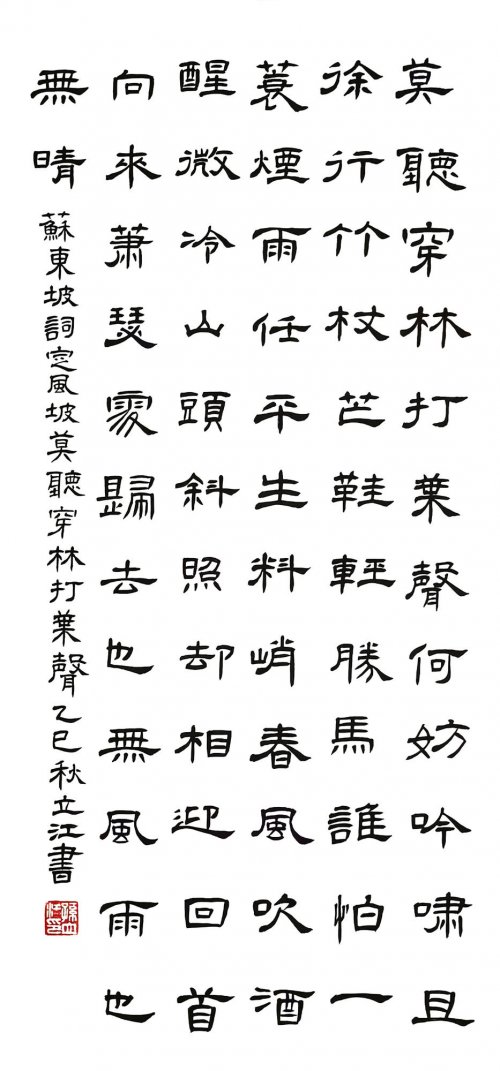 莫聽穿林打葉聲何妨吟嘯且
徐行竹杖芒鞋輕勝馬誰怕一
蓑煙雨任平生料峭春風吹酒
醒微冷山頭斜照却相迎回首
向來蕭瑟處歸去也無風雨也
無晴
蘇東坡詞定風坡莫聽穿林打葉聲乙巳秋立江書